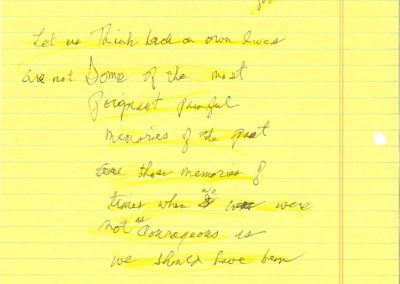 Let us Think back on own lives
are not Some of the most
Poignant painful
memories of the past
those memories of
times when we were
not as Courageous as
we should have been